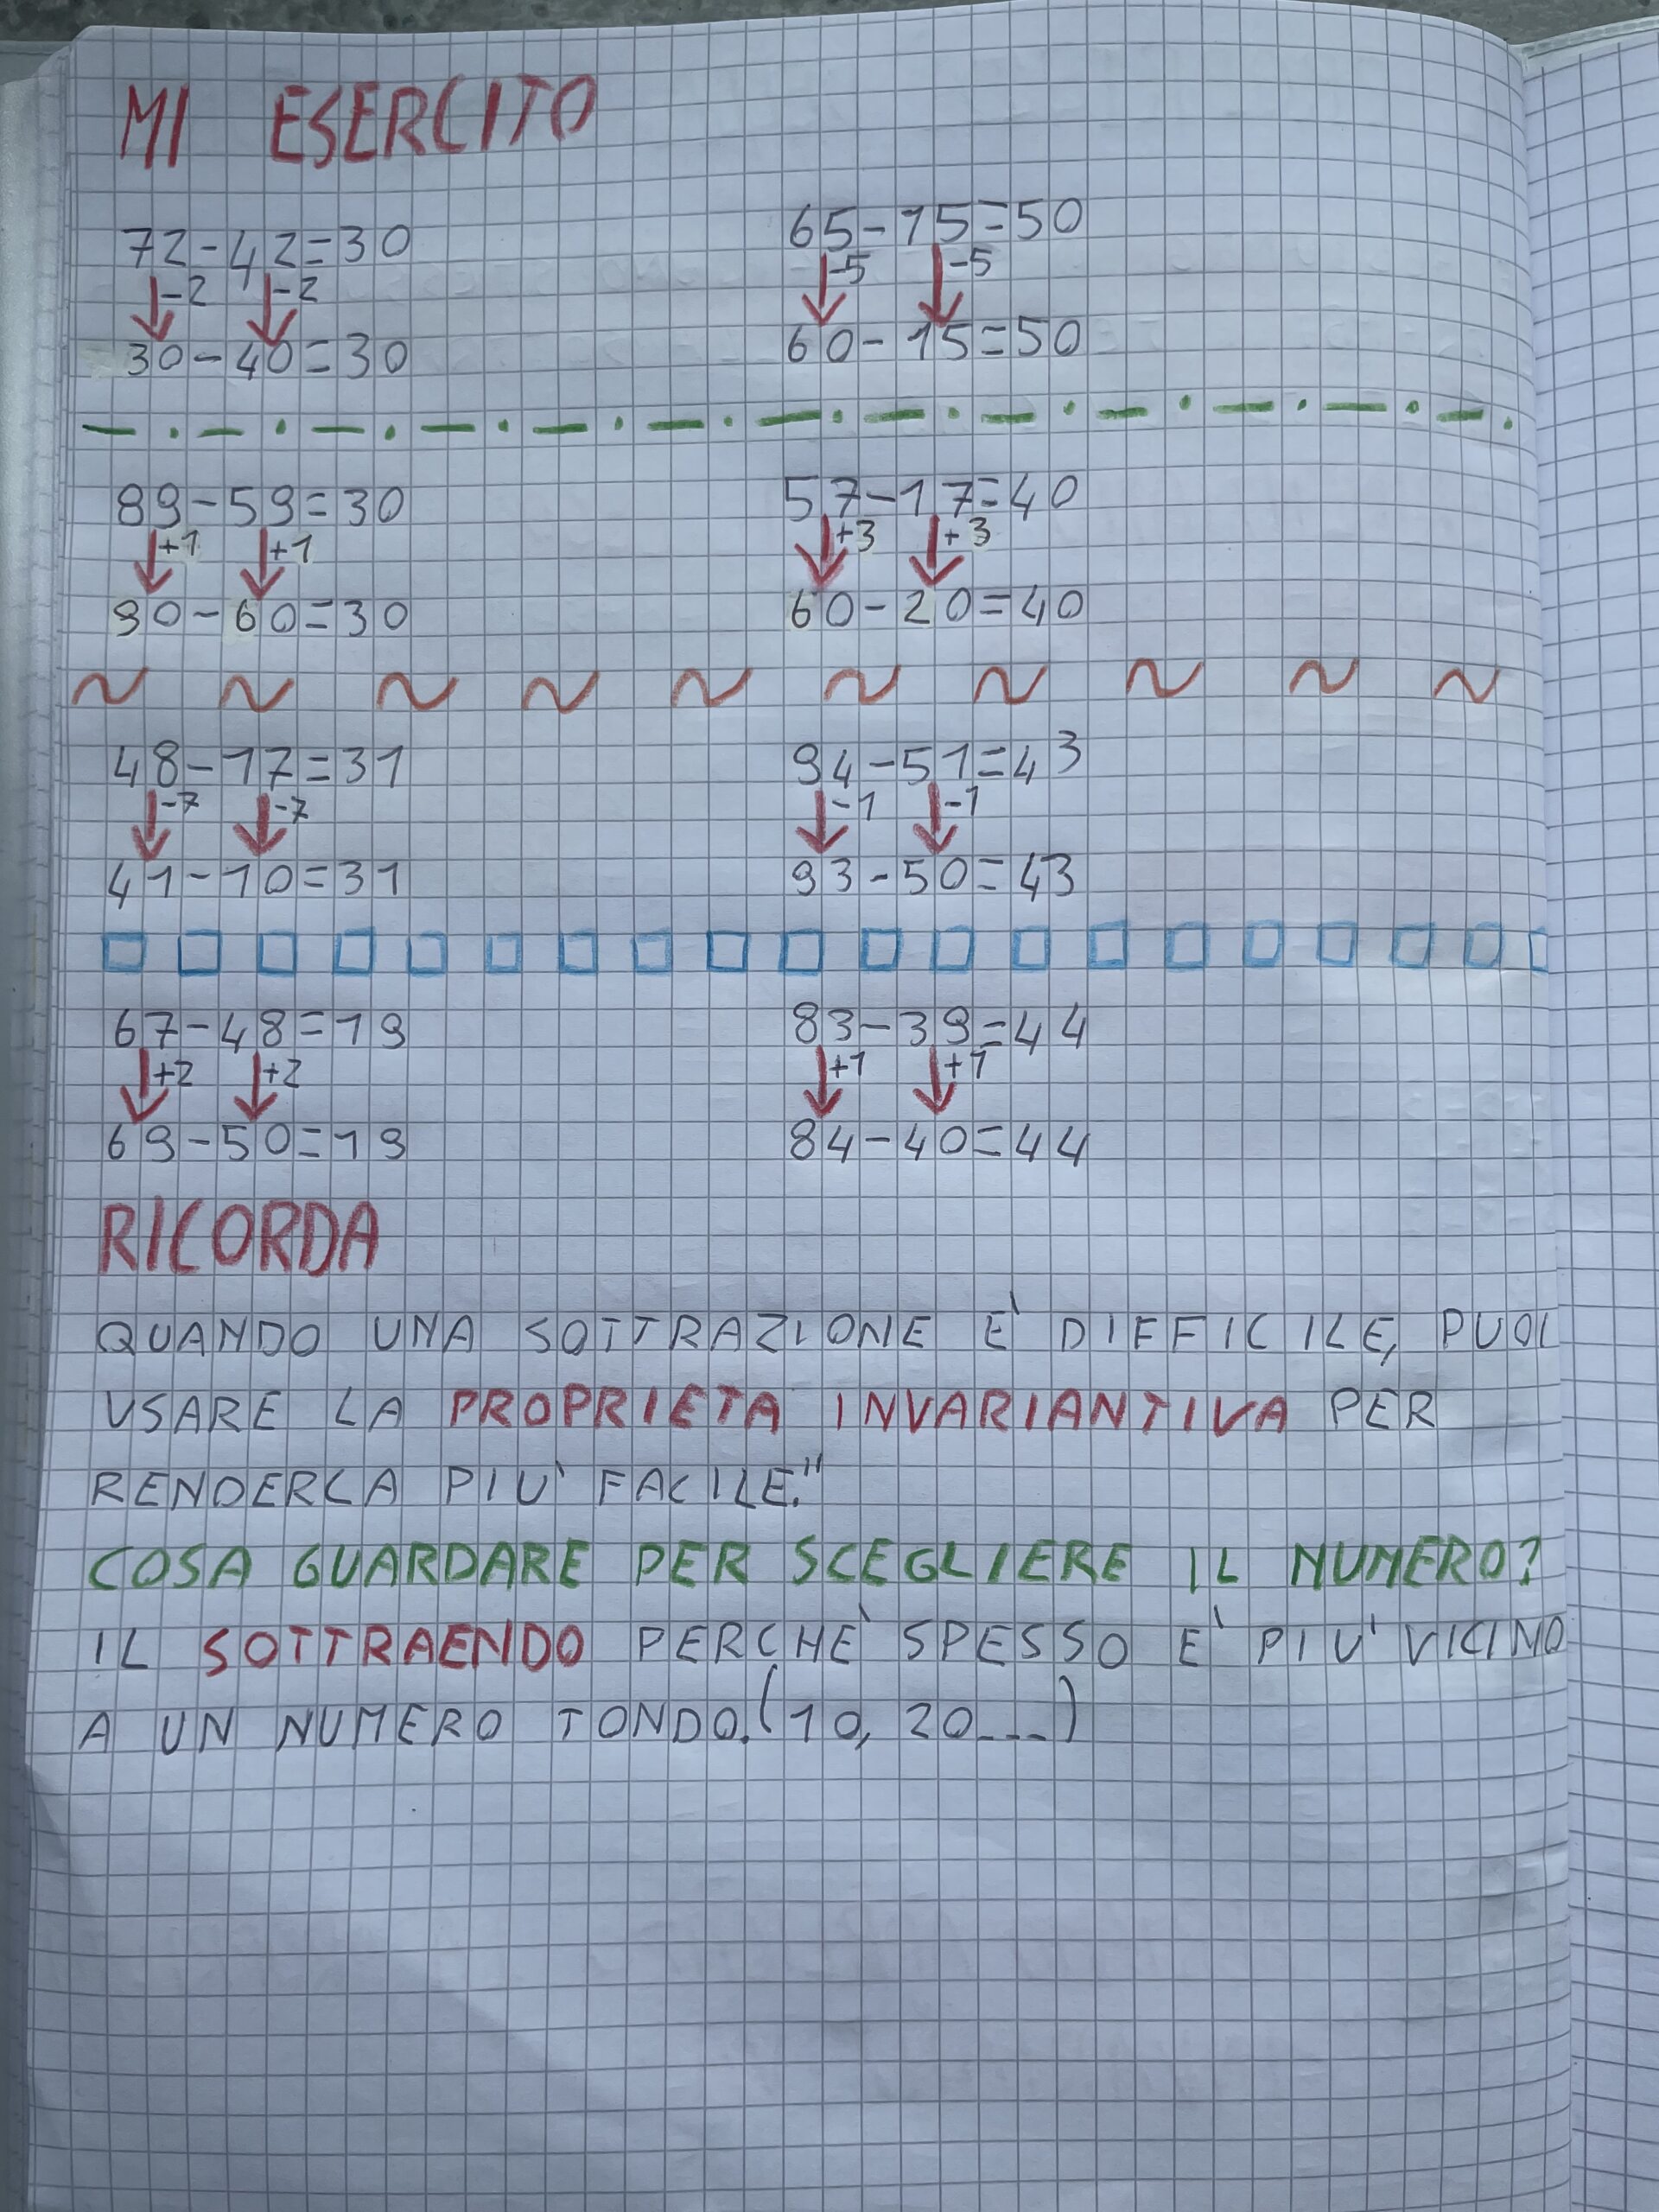 MI ESERCITO
72-42=30 65-15=50
-2 -2 -5 -5
30-40=30 60-15=50
89-59=30 57-17=40
+1 +1 +3 +3
90-60=30 60-20=40
48-17=31 94-51=43
-7 -7 -1 -1
41-10=31 93-50=43
67-48=19 83-39=44
+2 +2 +1 +1
69-50=19 84-40=44
RICORDA
QUANDO UNA SOTTRAZIONE E' DIFFICILE, PUOI
USARE LA PROPRIETA INVARIANTIVA PER
RENDERLA PIU' FACILE."
COSA GUARDARE PER SCEGLIERE IL NUMERO?
IL SOTTRAENDO PERCHE' SPESSO E' PIU' VICINO
A UN NUMERO TONDO.(10, 20...)